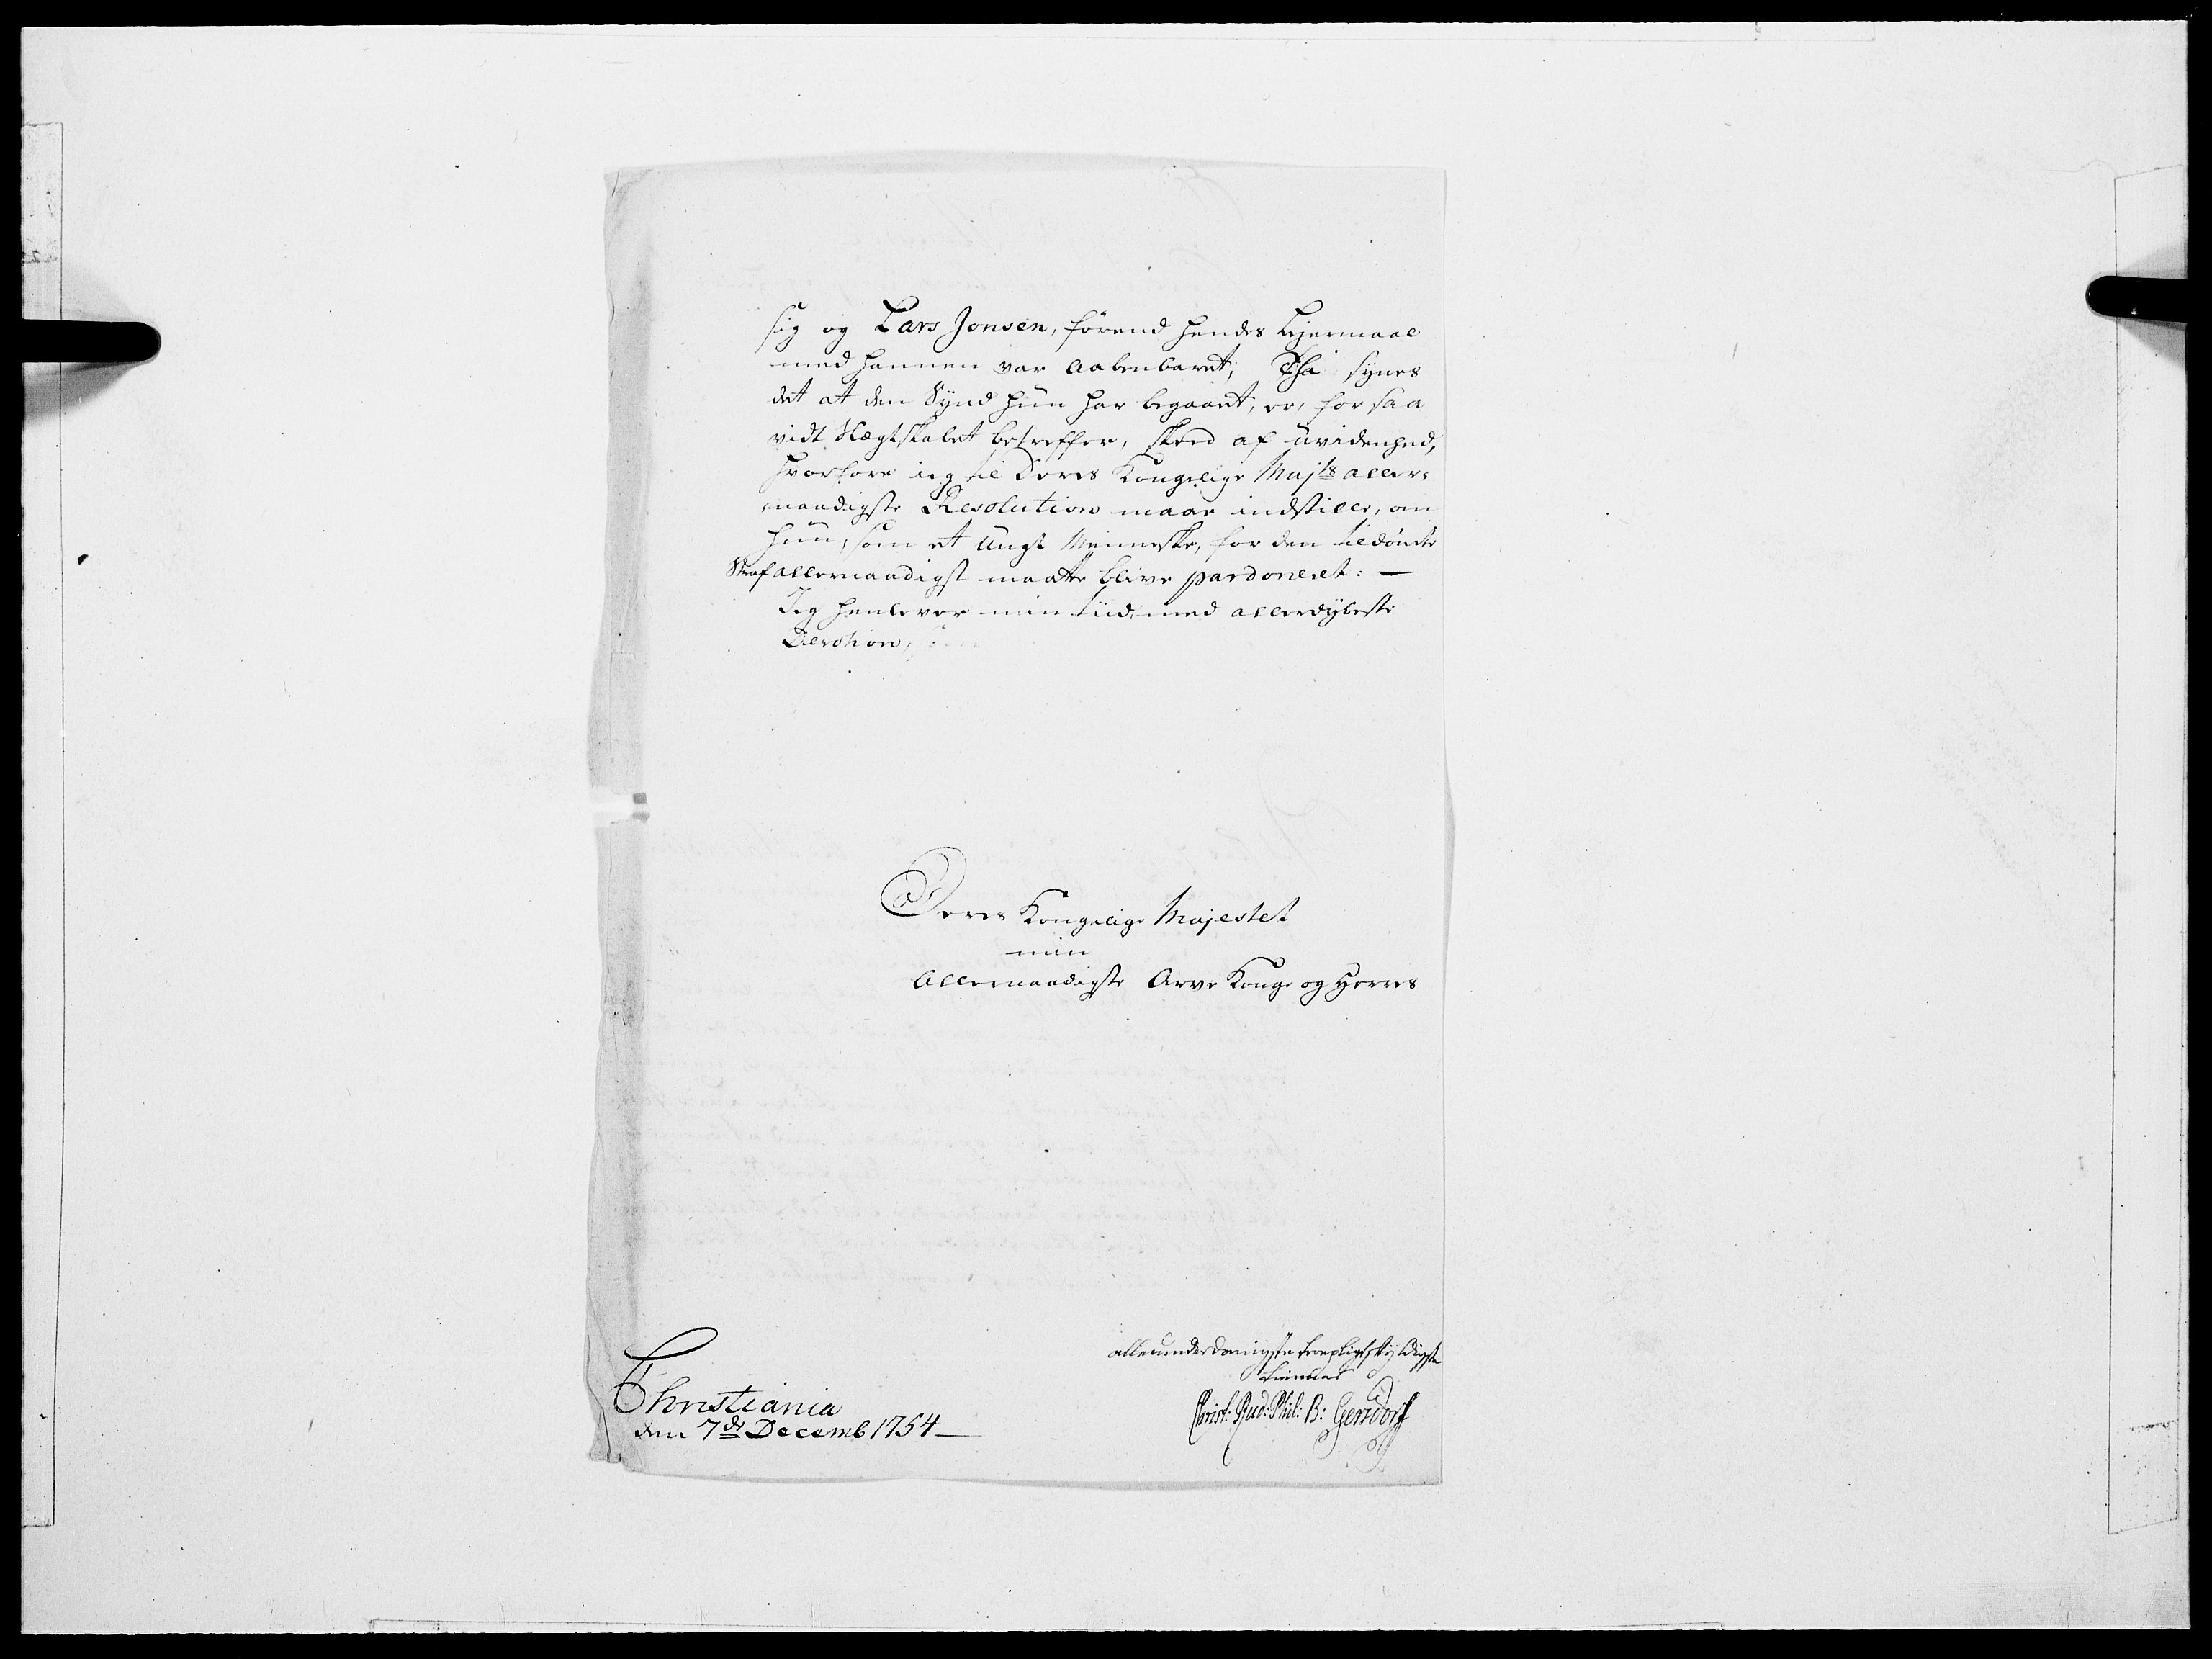 sig og Lars Jonsen, förend hendes Lejermaal
med hannem var aabenbaret; Thi synes
det at den Synd hun har begaaet, er, for saa
vidt Slegtskabet betreffer, skeed af uvidenhed,
hvorfore ieg til Deres Kongelige Majts aller-
naadigste Resolution maae indstille, om
hun, som et ungt Menneske, for den tildömte
Straf allernaadigst maatte blive pardoneret: —
Jeg henlever min tiid med allerdybeste
Devotion,
Deres Kongelige Majestet
min
Allernaadigste Arve Konge og Herres
allerunderdanigste troepligtskyldigste
tienner
Christ: Rud: Phil: B: Gersdorff
Christiania
den 7de Decemb 1754